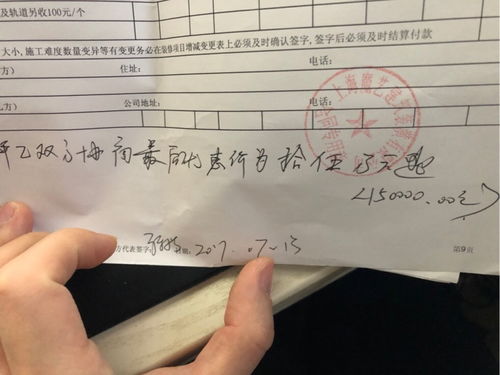 及轨道另收100元/个
大小,施工难度数量变异等有变更务必在装修项目增减变更表上必须及时确认签字,签字后必须及时结算付款
方）
住址:
电话:
乙方）
公司地址:
电话:
甲乙双方协商最后优惠价为拾伍万元整
<150000.00元>
方代表签字:
日期: 2017.07-15
第9页